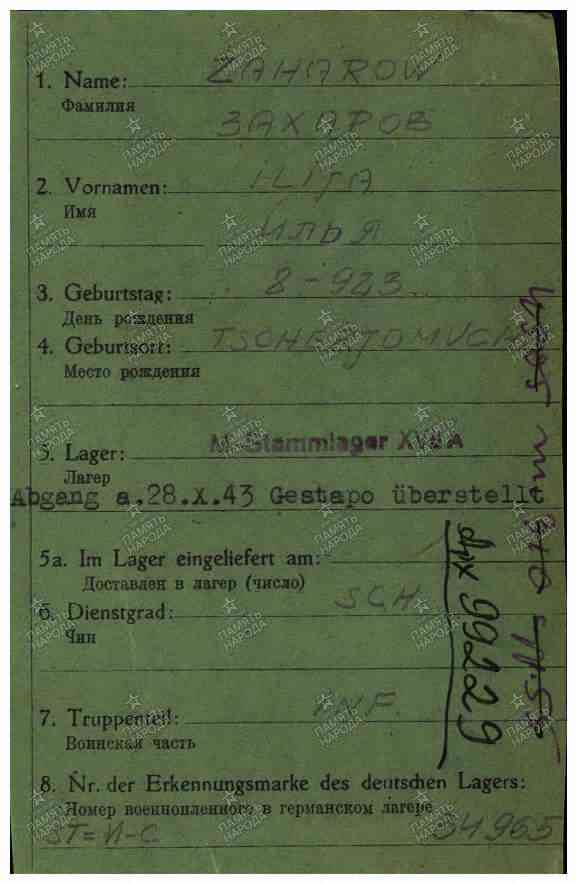 1. Name: ZAHAROW
Фамилия
ЗАХАРОВ
2. Vornamen: ILIJA
Имя
ИЛЬЯ
3. Geburtstag: 8-923
День рождения
4. Geburtsort:
Место рождения
5. Lager: M.-Stammlager XVII A
Лагер
Abgang a.28.X.43 Gestapo überstellt
5a. Im Lager eingeliefert am:
Доставлен в лагер (число)
6. Dienstgrad: SCH
Чин
7. Truppenteil: INF.
Воинская часть
8. Nr. der Erkennungsmarke des deutschen Lagers:
Номер военнопленного в германском лагере
34965
99229
ПАМЯТЬ НАРОДА